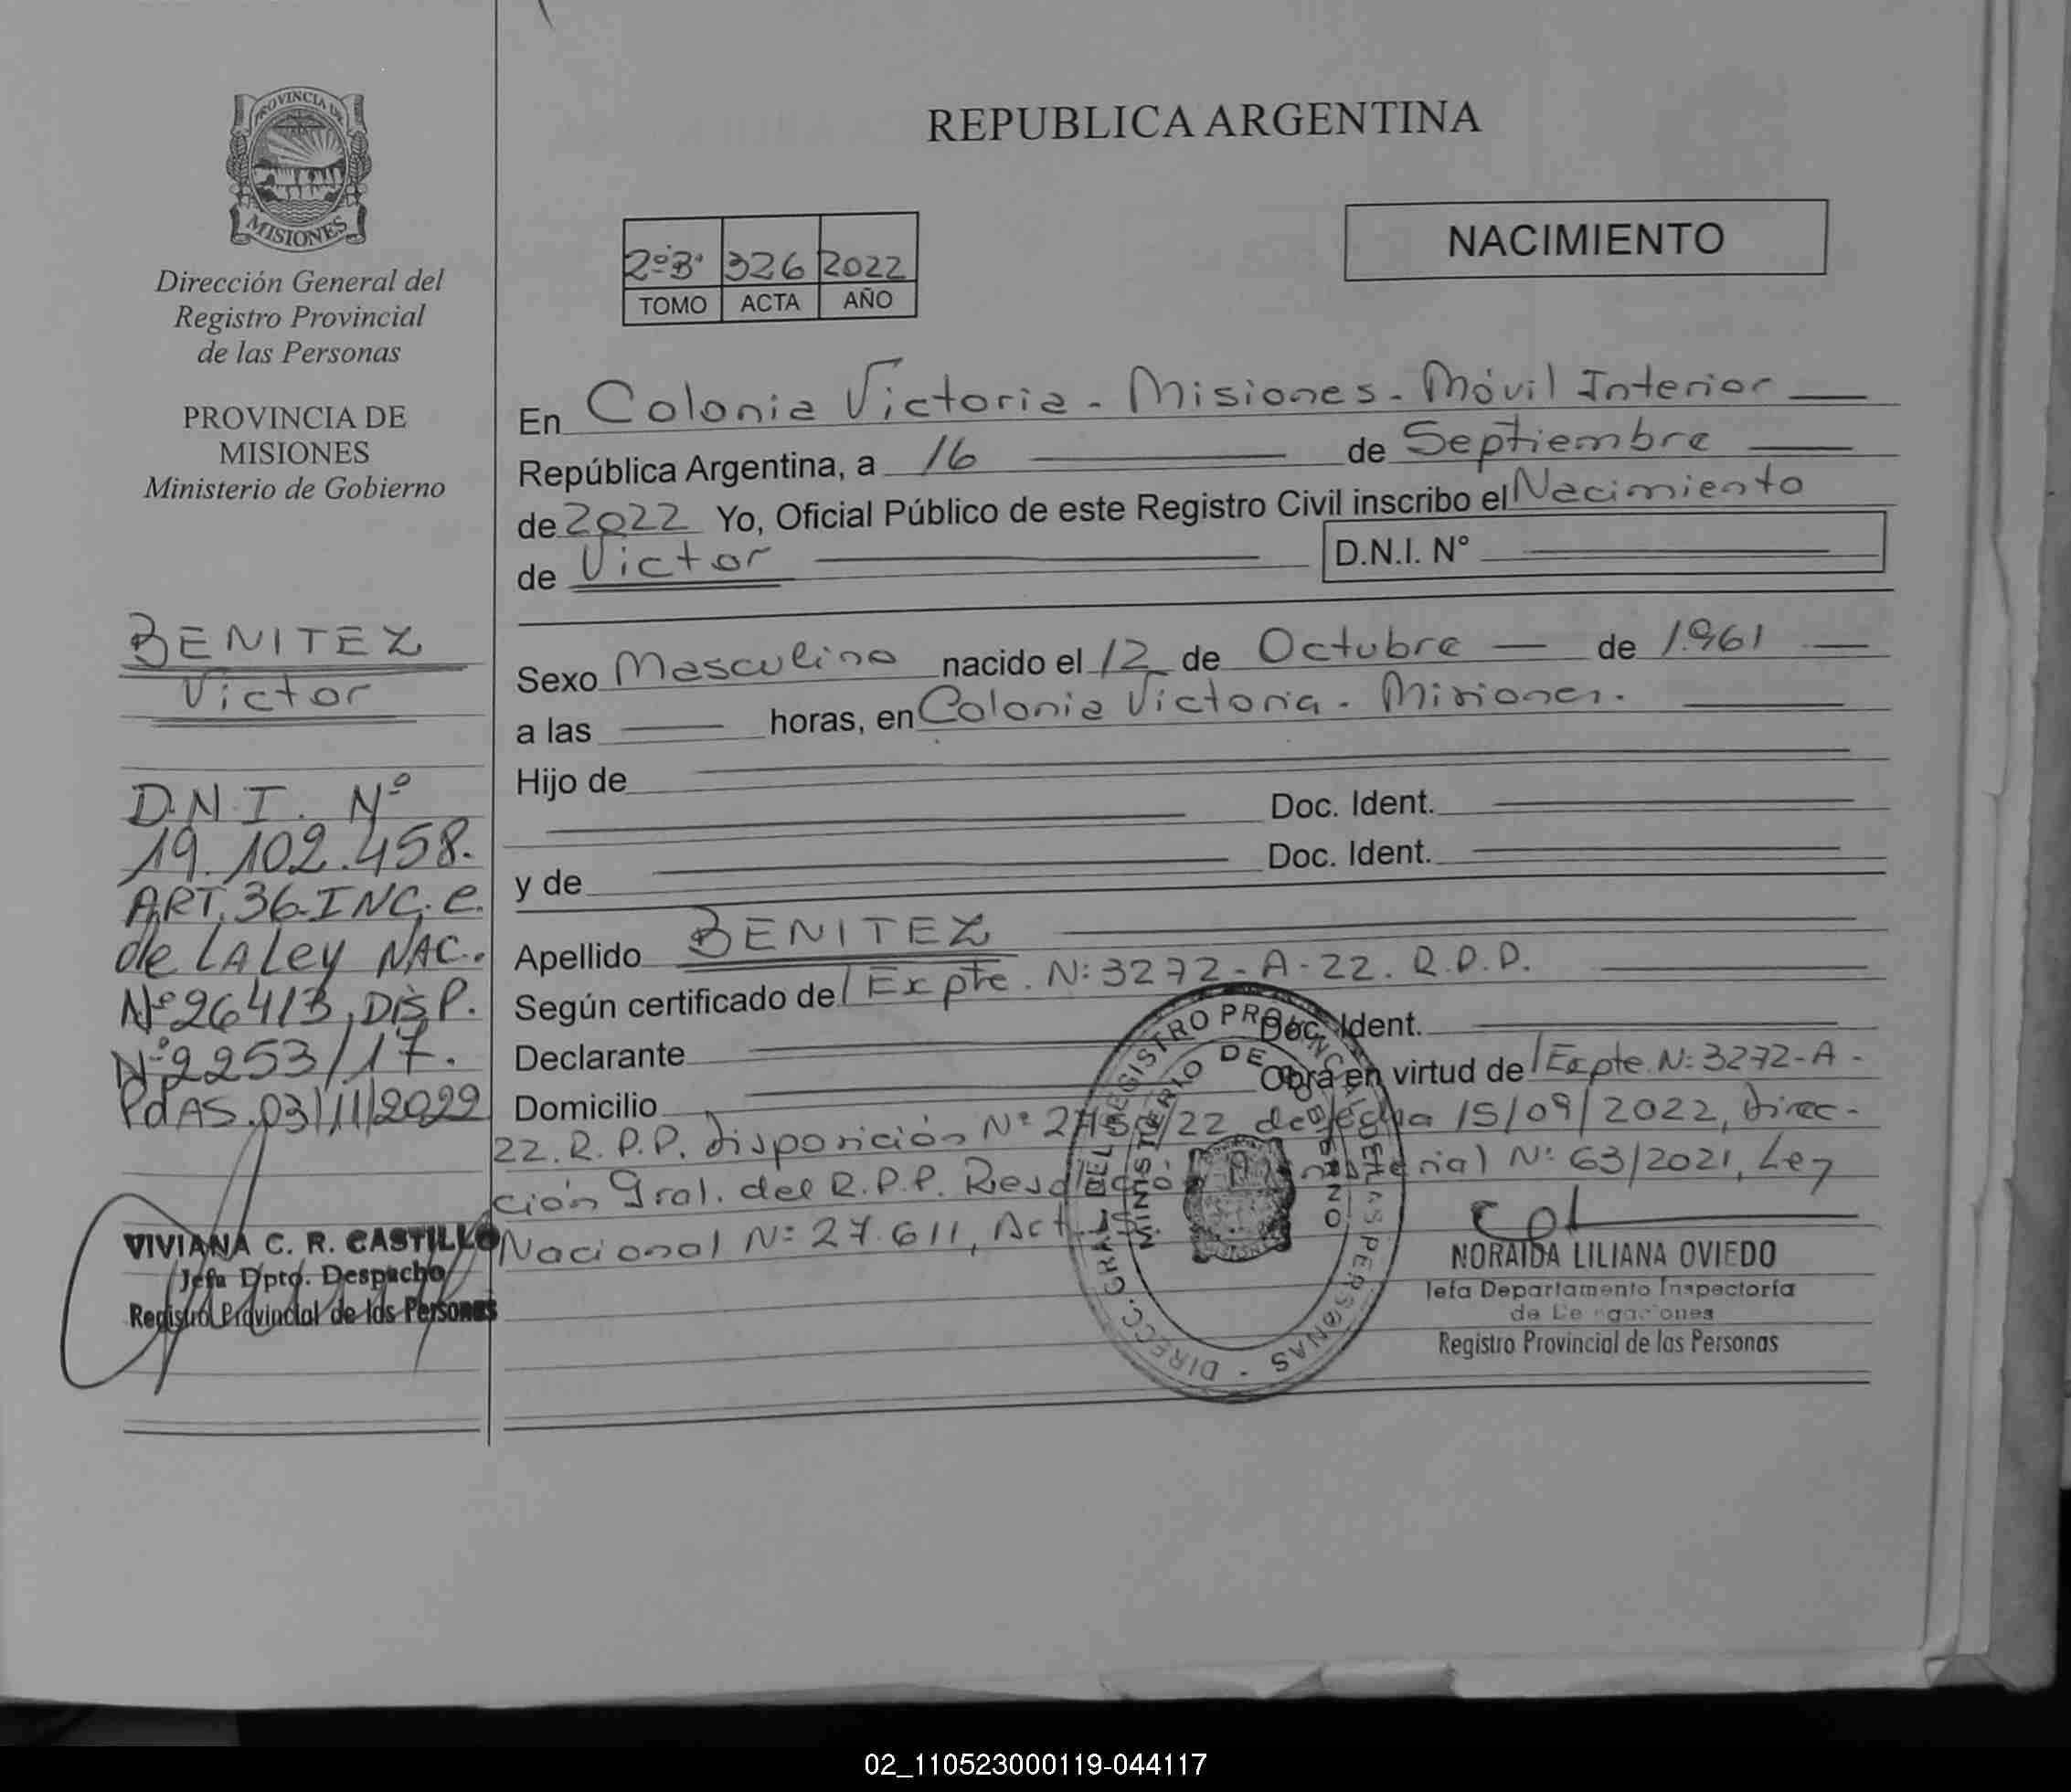 PROVINCIA DE
MISIONES
Dirección General del
Registro Provincial
de las Personas
PROVINCIA DE
MISIONES
Ministerio de Gobierno
BENITEZ
Victor
D.N.I. Nº
19.102.458.
ART. 36-INC. e.
de LA Ley NAC.
Nº 26413, DISP.
Nº 2253/17.
PdAS. 03/11/2022
VIVIANA C. R. CASTILLO
Jefa Dpto. Despacho
Registro Provincial de las Personas
REPUBLICA ARGENTINA
NACIMIENTO
2º B' 326 2022
TOMO ACTA AÑO
En Colonia Victoria - Misiones - Móvil Interior
República Argentina, a 16 de Septiembre
de 2022 Yo, Oficial Público de este Registro Civil inscribo el Nacimiento
de Victor D.N.I. N°
Sexo Masculino nacido el 12 de Octubre de 1.961
a las horas, en Colonia Victoria - Misiones.
Hijo de
Doc. Ident.
y de Doc. Ident.
Apellido BENITEZ
Según certificado del Expte. N: 3272-A-22. R.P.P.
Declarante Doc. Ident.
Domicilio Obra en virtud del Expte. N: 3272-A-
22. R.P.P. Disposición Nº de fecha 15/09/2022, Direc-
ción Gral. del R.P.P. Resolución Ministerial Nº 63/2021, Ley
Nacional Nº 27.611, Act.
DIRECC. GRAL. DEL REGISTRO PROVINCIAL DE LAS PERSONAS
MINISTERIO DE GOBIERNO
NORAIDA LILIANA OVIEDO
Jefa Departamento Inspectoría
de Delegaciones
Registro Provincial de las Personas
02_110523000119-044117